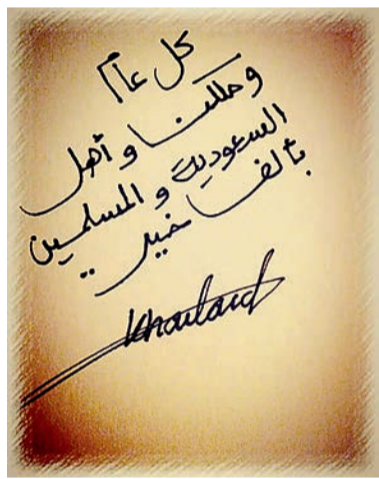 كل عام
وملكنا وأهل
السعودية والمسلمين
بألف خير ..